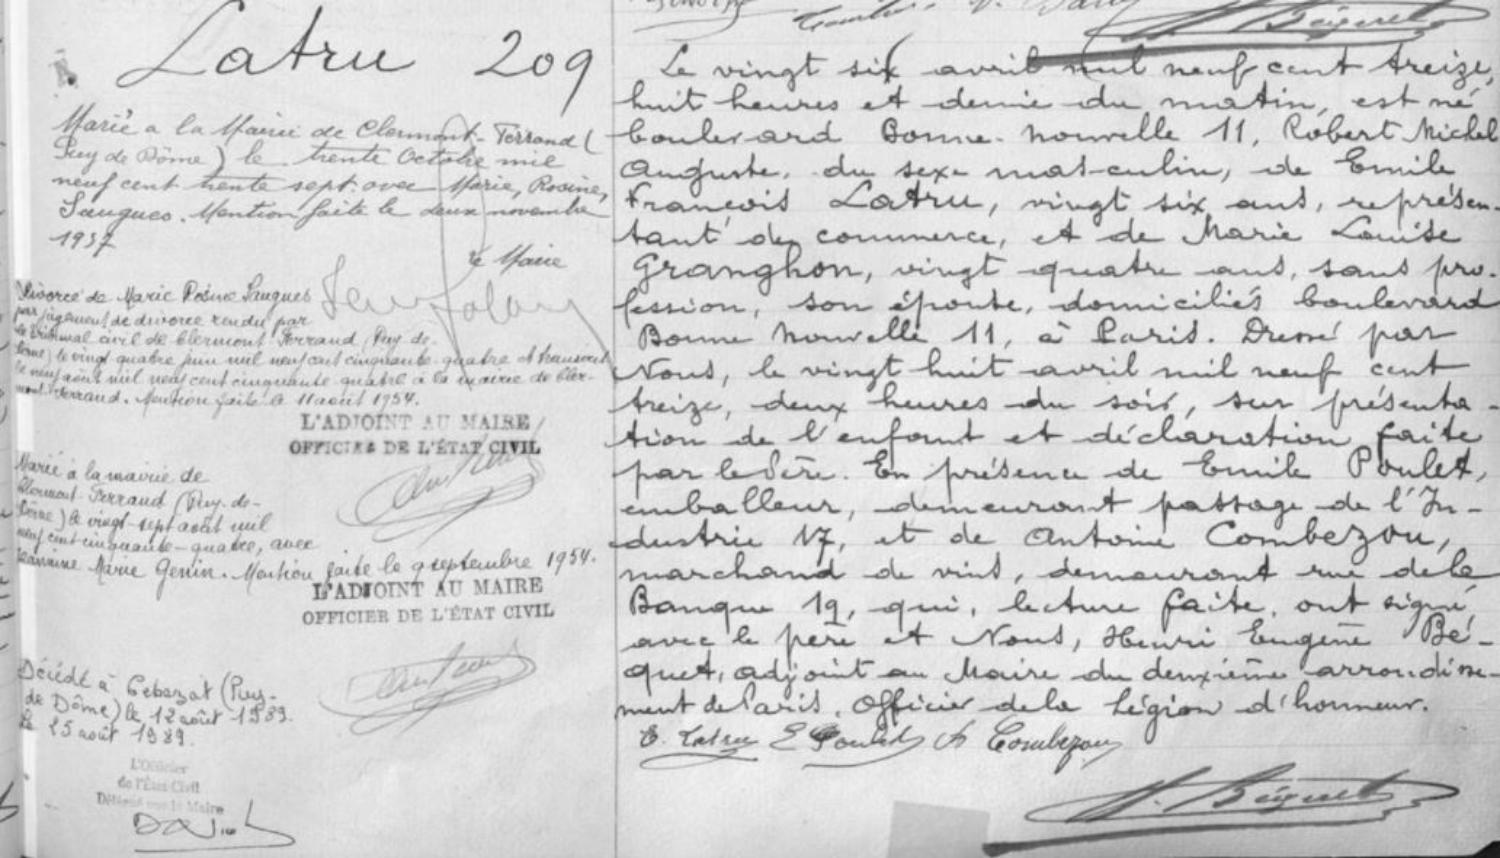 Latru 209
Marié a la Mairie de Clermont-Ferrand (
Puy de Dôme) le trente Octobre mil
neuf cent trente sept. avec Marie, Rosine,
Saugues. Mention faite le deux novembre
1937
le Maire
Divorcé de Marie Rosine Saugues
par jugement de divorce rendu par
le tribunal civil de Clermont-Ferrand (Puy de
Dôme) le vingt quatre juin mil neuf cent cinquante-quatre et transcrit
le neuf août mil neuf cent cinquante-quatre à la mairie de Cler-
mont-Ferrand. Mention faite le 11 août 1954.
L'ADJOINT AU MAIRE
OFFICIER DE L'ÉTAT CIVIL
Marié à la mairie de
Clermont-Ferrand (Puy-de-
Dôme) le vingt-sept août mil
neuf cent cinquante-quatre, avec
Jeannine Marie Genin. Mention faite le 9 septembre 1954.
L'ADJOINT AU MAIRE
OFFICIER DE L'ÉTAT CIVIL
Décédé à Cebazat (Puy-
de Dôme) le 12 août 1989.
Le 25 août 1989.
L'Officier
de l'État Civil
Délégué par le Maire
Le vingt six avril mil neuf cent treize,
huit heures et demie du matin, est né
boulevard Bonne-Nouvelle 11, Robert Michel
Auguste, du sexe masculin, de Emile
François Latru, vingt six ans, représen-
tant de commerce, et de Marie Louise
Granghon, vingt quatre ans, sans pro-
fession, son épouse, domiciliés boulevard
Bonne Nouvelle 11, à Paris. Dressé par
Nous, le vingt huit avril mil neuf cent
treize, deux heures du soir, sur présenta-
tion de l'enfant et déclaration faite
par le Père. En présence de Emile Poulet,
emballeur, demeurant passage de l'In-
dustrie 17, et de Antoine Combezou,
marchand de vins, demeurant rue de la
Banque 19, qui, lecture faite, ont signé
avec le père et Nous, Henri Eugène Bé-
quet, adjoint au Maire du deuxième arrondisse-
ment de Paris, Officier de la Légion d'honneur.
E. Latru E Poulet A Combezou
H. Béquet